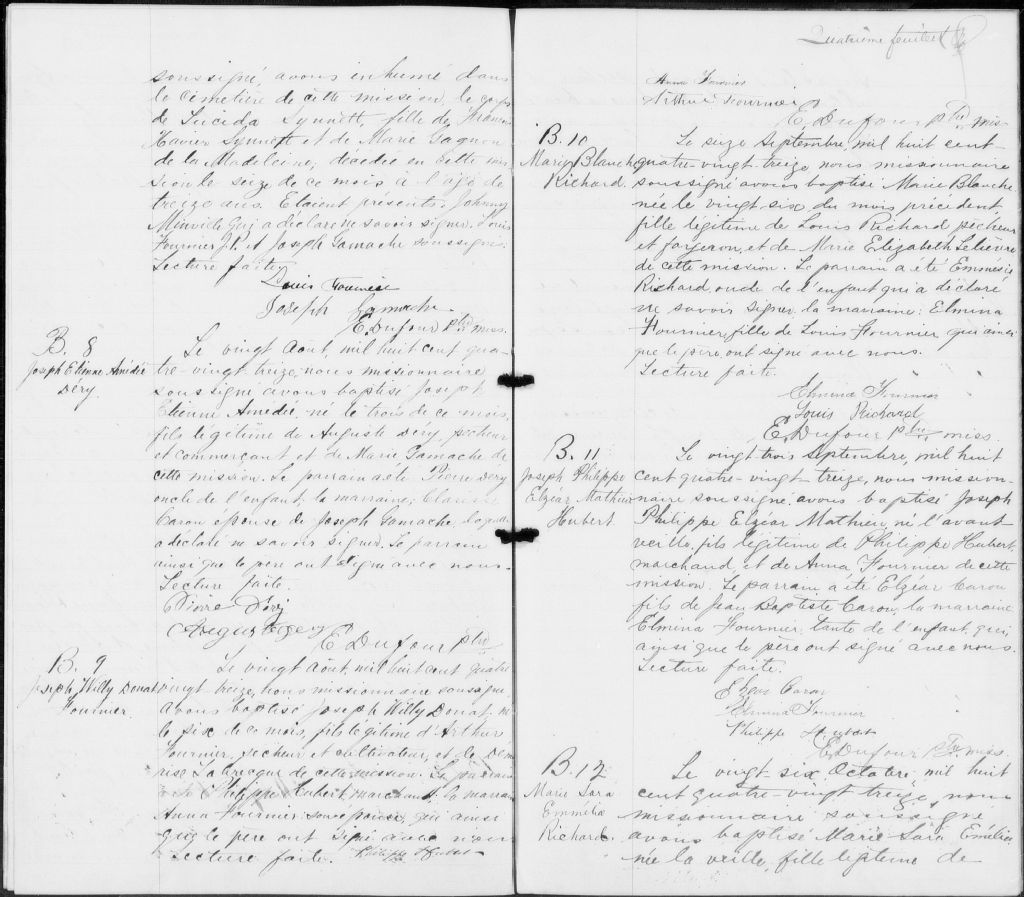 soussigné, avons inhumé dans
le cimetière de cette mission, le corps
de Lucida Synnett, fille de
Xavier Synnett et de Marie Gagnon
de la Madeleine, décédée en cette mis
sion le seize de ce mois à l'age de
treize ans. Etaient présents, Johnny
Minville qui a déclaré ne savoir signer, Louis
Fournier et Joseph Gamache soussignés.
Lecture faite.
Louis Fournier
Joseph Gamache
E. Dufour ptre miss.
B. 8
Joseph Etienne Amédée
Déry.
Le vingt Août, mil huit cent qua-
tre-vingt treize, nous missionnaire
soussigné avons baptisé Joseph
Etienne Amédée, né le trois de ce mois,
fils légitime de Auguste Déry, pecheur
et commerçant et de Marie Gamache de
cette mission. Le parrain a été Pierre Déry
oncle de l'enfant, la marraine, Clarisse
Caron épouse de Joseph Gamache
a déclaré ne savoir signer. Le parrain
ainsi que le père ont signé avec nous.
Lecture faite.
Pierre Déry
E. Dufour ptre
B. 9
Joseph Willy Donat
Fournier.
Le vingt Août, mil huit cent quatre
vingt treize, nous missionnaire soussigné
avons baptisé Joseph Willy Donat né
le six de ce mois, fils légitime d'Arthur
Fournier, pecheur et cultivateur, et de
Labrecque de cette mission. Le parrain
a été Philippe Hubert, marchand, la marraine
Anna Fournier qui ainsi
que le père ont signé avec nous
Lecture faite. Philippe Hubert
Quatrième feuillet
Anna Fournier
Arthur Fournier
E. Dufour ptre miss
B. 10
Marie Blanche
Richard.
Le seize Septembre, mil huit cent
quatre-vingt-treize, nous missionnaire
soussigné avons baptisé Marie Blanche
née le vingt-six du mois précédent,
fille légitime de Louis Richard pêcheur
et forgeron, et de Marie Elizabeth Lelièvre
de cette mission. Le parrain a été
Richard, oncle de l'enfant qui a déclaré
ne savoir signer, la marraine: Elmina
Fournier, fille de Louis Fournier qui ainsi
que le père ont signé avec nous.
Lecture faite.
Elmina Fournier
Louis Richard
E. Dufour ptre miss.
B. 11
Joseph Philippe
Elzéar Mathieu
Hubert
Le vingt trois Septembre, mil huit
cent quatre-vingt-treize, nous mission-
naire soussigné avons baptisé Joseph
Philippe Elzéar Mathieu, né l'avant
veille, fils légitime de Philippe Hubert,
marchand, et de Anna Fournier de cette
mission. Le parrain a été Elzéar Caron
fils de Jean Baptiste Caron, la marraine
Elmina Fournier, tante de l'enfant, qui
ainsi que le père ont signé avec nous.
Lecture faite.
Elzear Caron
Elmina Fournier
Philippe Hubert
E. Dufour ptre miss.
B. 12
Marie Sara
Emmélia
Richard.
Le vingt-six Octobre, mil huit
cent quatre-vingt treize, nous
missionnaire soussigné
avons baptisé Marie Sara Emélia
née la veille, fille légitime de